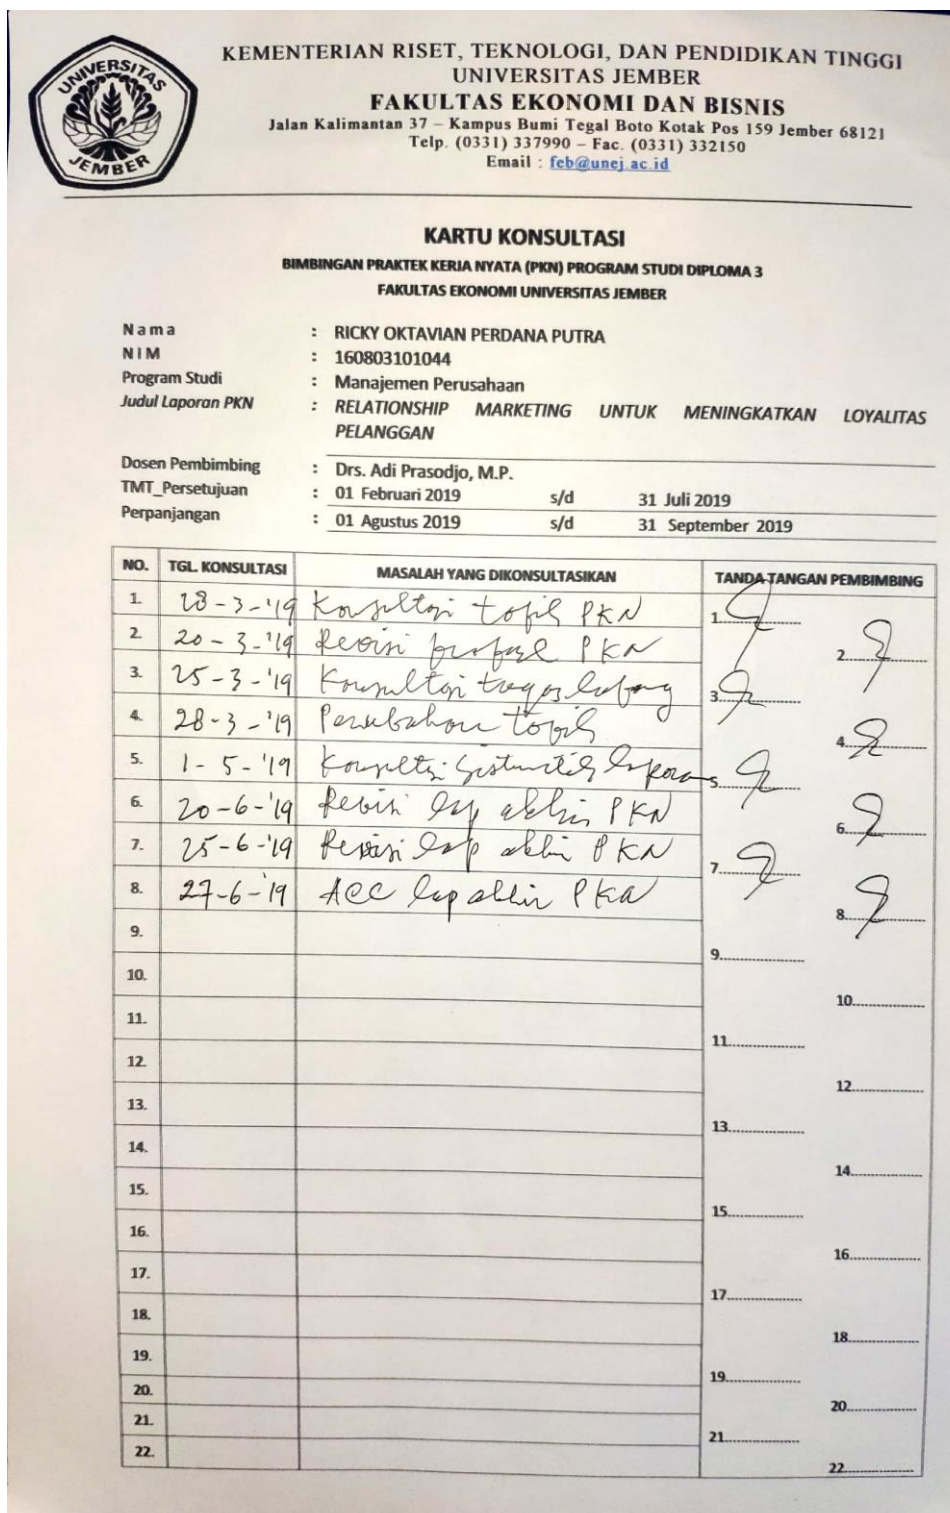 UNIVERSITAS
JEMBER
KEMENTERIAN RISET, TEKNOLOGI, DAN PENDIDIKAN TINGGI
UNIVERSITAS JEMBER
FAKULTAS EKONOMI DAN BISNIS
Jalan Kalimantan 37 – Kampus Bumi Tegal Boto Kotak Pos 159 Jember 68121
Telp. (0331) 337990 – Fac. (0331) 332150
Email : feb@unej.ac.id
KARTU KONSULTASI
BIMBINGAN PRAKTEK KERJA NYATA (PKN) PROGRAM STUDI DIPLOMA 3
FAKULTAS EKONOMI UNIVERSITAS JEMBER
Nama : RICKY OKTAVIAN PERDANA PUTRA
NIM : 160803101044
Program Studi : Manajemen Perusahaan
Judul Laporan PKN : RELATIONSHIP MARKETING UNTUK MENINGKATKAN LOYALITAS
PELANGGAN
Dosen Pembimbing : Drs. Adi Prasodjo, M.P.
TMT_Persetujuan : 01 Februari 2019 s/d 31 Juli 2019
Perpanjangan : 01 Agustus 2019 s/d 31 September 2019
NO. TGL. KONSULTASI MASALAH YANG DIKONSULTASIKAN TANDA TANGAN PEMBIMBING
1. 28-3-'19 Konsultasi topik PKN 1
2. 20-3-'19 Revisi PKN 2
3. 25-3-'19 Konsultasi 3
4. 28-3-'19 Perubahan topik 4
5. 1-5-'19 Konsultasi 5
6. 20-6-'19 Revisi lap akhir PKN 6
7. 25-6-'19 Revisi lap akhir PKN 7
8. 27-6-'19 ACC lap akhir PKN 8
9. 9
10. 10
11. 11
12. 12
13. 13
14. 14
15. 15
16. 16
17. 17
18. 18
19. 19
20. 20
21. 21
22. 22